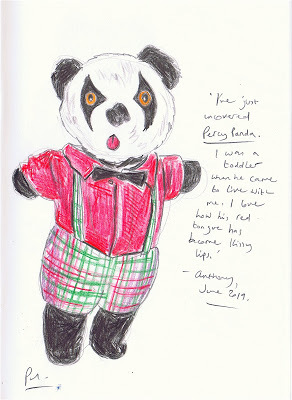 'I've just
uncovered
Percy Panda.
I was a
toddler
when he came
to live with
me. I love
how his red
tongue has
become 'kissy
lips.'
- Anthony,
June 2019.